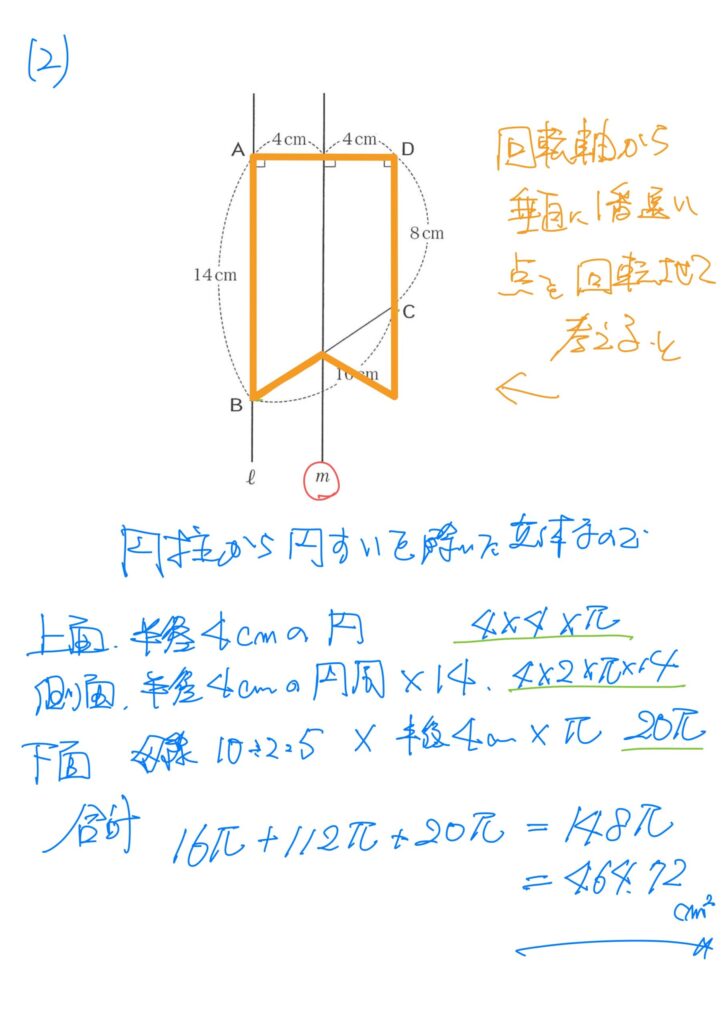 (2)
4cm 4cm
A D
8cm
14cm
C
10cm
B
ℓ m
回転軸から
垂直に1番遠い
点を回転させて
考えると
←
円柱から円すいを除いた立体なので
上面.半径4cmの円 4×4×π
側面.半径4cmの円周×14. 4×2×π×14
下面 母線10÷2=5×半径4cm×π 20π
合計 16π+112π+20π=148π
=464.72
cm²